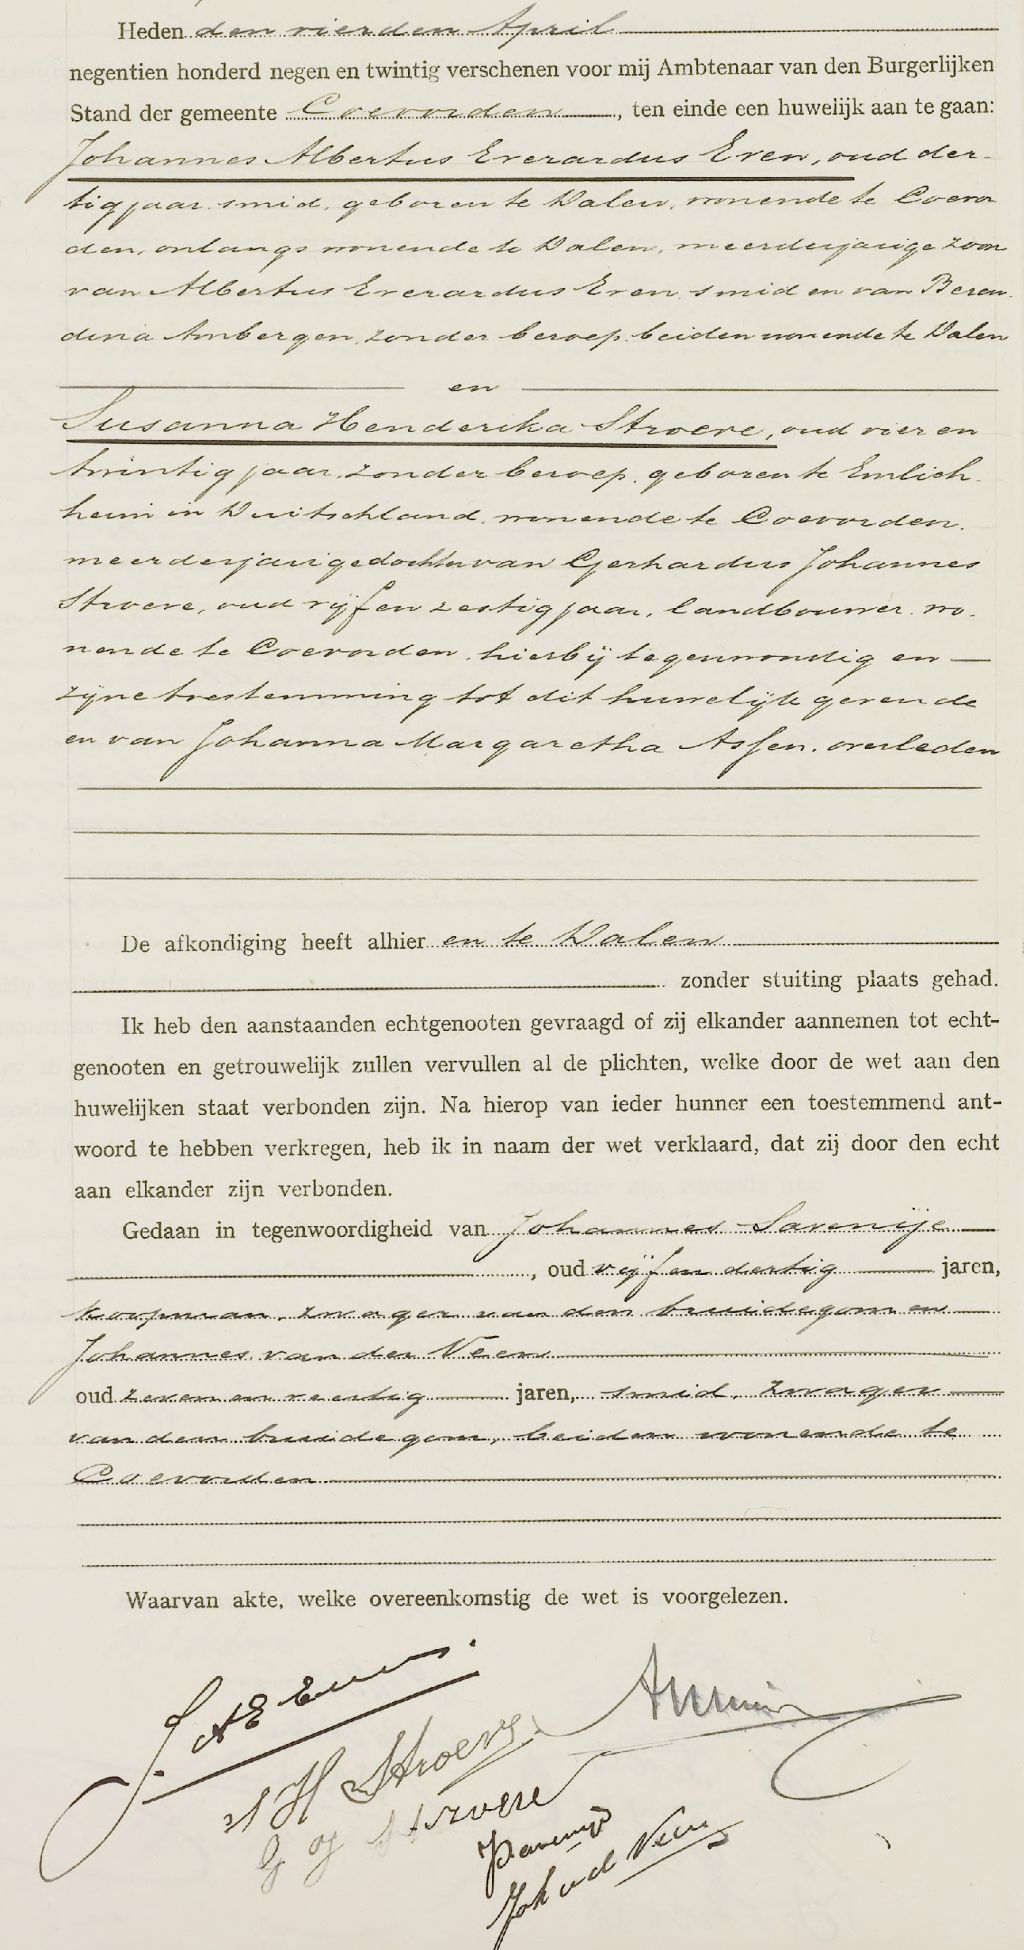 Heden den vierden April
negentien honderd negen en twintig verschenen voor mij Ambtenaar van den Burgerlijken
Stand der gemeente Coevorden, ten einde een huwelijk aan te gaan:
Johannes Albertus Everardus Even, oud der-
tig jaar, smid, geboren te Dalen, wonende te Coevor
den, onlangs wonende te Dalen, meerderjarige zoon
van Albertus Everardus Even, smid en van Beren
dina Ambergen, zonder beroep, beiden wonende te Dalen
en
Susanna Henderika Stroeve, oud vier en
twintig jaar, zonder beroep, geboren te Emlich-
heim in Duitschland, wonende te Coevorden,
meerderjarige dochter van Gerhardus Johannes
Stroeve, oud vijf en zestig jaar, landbouwer, wo-
nende te Coevorden, hierbij tegenwoordig en
zijne toestemming tot dit huwelijk gevende
en van Johanna Margaretha Assen, overleden
De afkondiging heeft alhier en te Dalen
zonder stuiting plaats gehad.
Ik heb den aanstaanden echtgenooten gevraagd of zij elkander aannemen tot echt-
genooten en getrouwelijk zullen vervullen al de plichten, welke door de wet aan den
huwelijken staat verbonden zijn. Na hierop van ieder hunner een toestemmend ant-
woord te hebben verkregen, heb ik in naam der wet verklaard, dat zij door den echt
aan elkander zijn verbonden.
Gedaan in tegenwoordigheid van Johannes Savenije
, oud vijf en dertig jaren,
koopman, zwager van den bruidegom en
Johannes van der Veen
oud zeven en veertig jaren, smid, zwager
van den bruidegom, beiden wonende te
Coevorden
Waarvan akte, welke overeenkomstig de wet is voorgelezen.
J. A E Even
S H Stroeve
G J Stroeve
J Savenije
Joh v d Veen